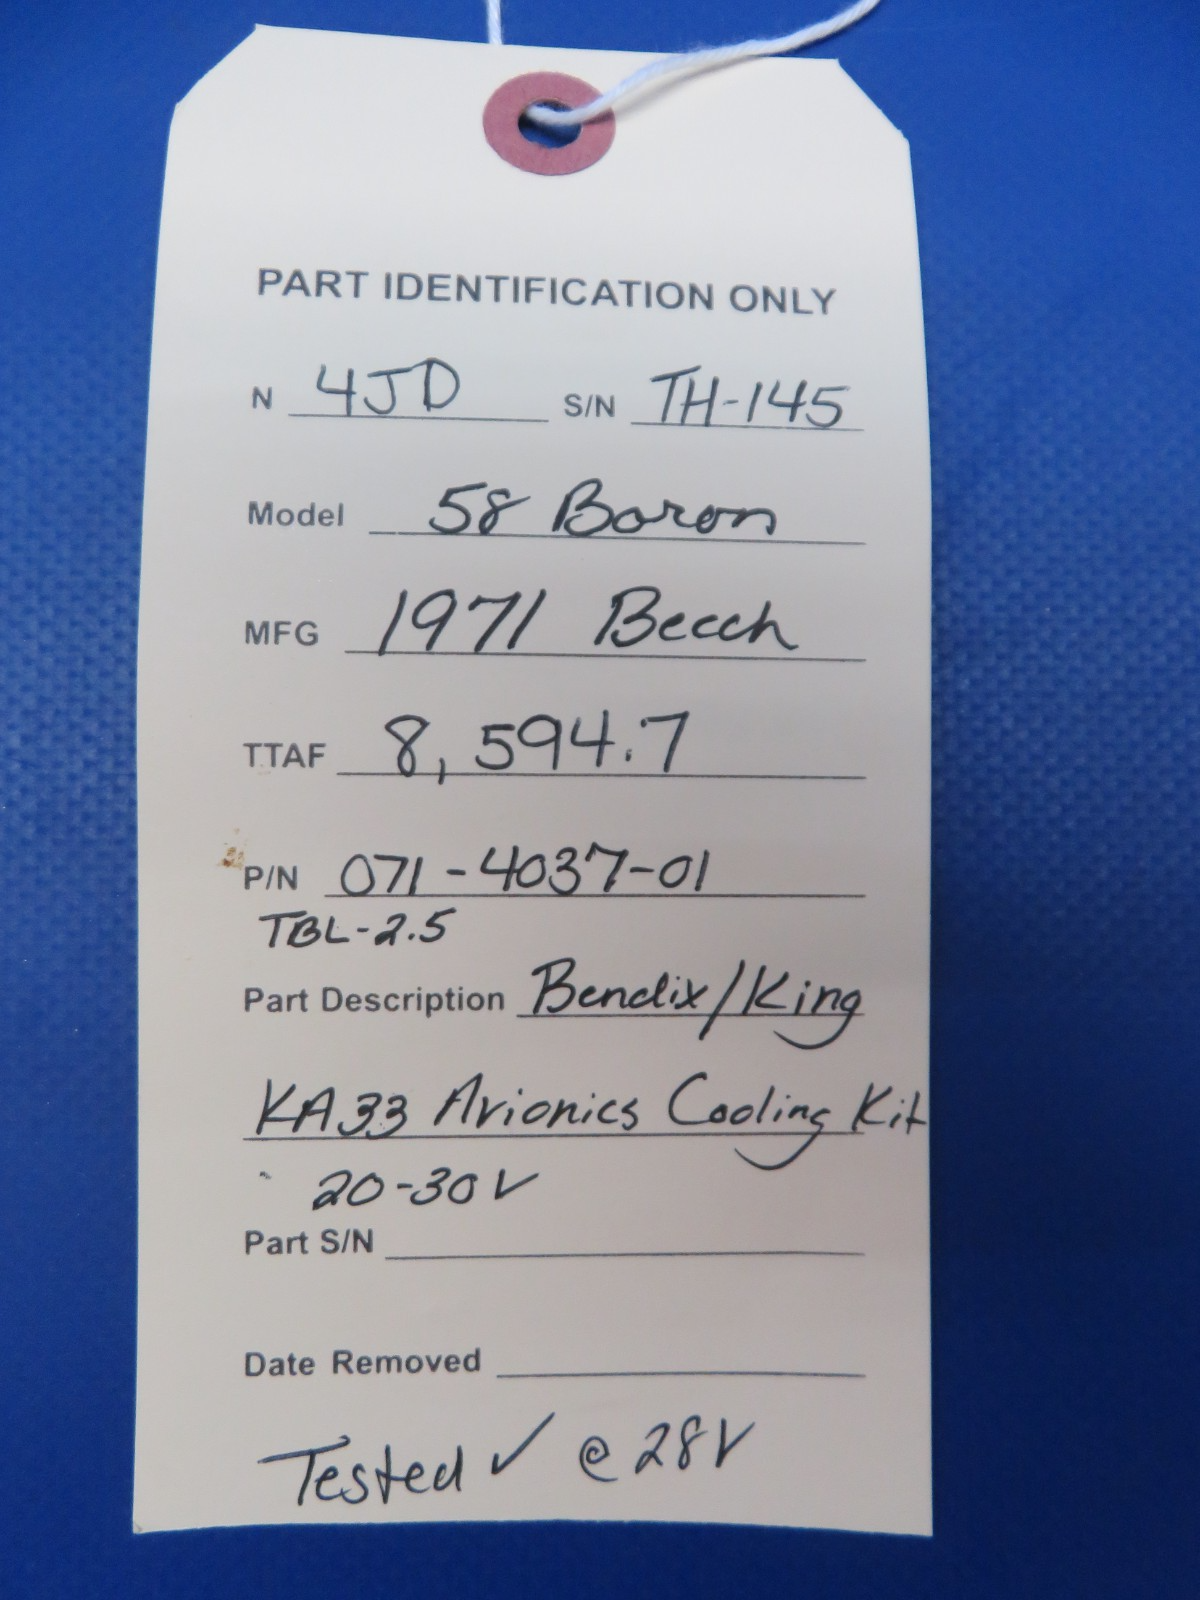 PART IDENTIFICATION ONLY
N 4JD S/N TH-145
Model 58 Baron
MFG 1971 Beech
TTAF 8,594.7
P/N 071-4037-01
TBL-2.5
Part Description Bendix/King
KA33 Avionics Cooling Kit
20-30V
Part S/N
Date Removed
Tested ✓ @ 28V